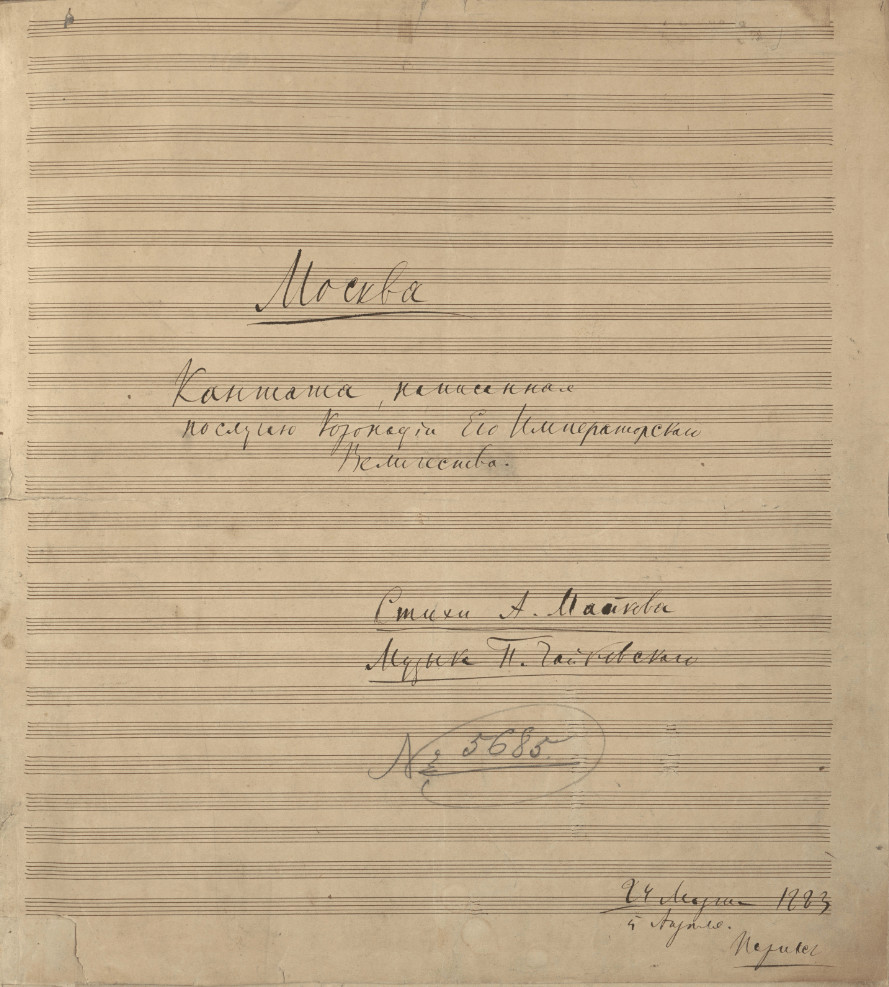 Москва
Кантата, написанная
по случаю Коронаціи Его Императорскаго
Величества.
Стихи А. Майкова
Музыка П. Чайковскаго
№ 5685
24 Марта 1883
5 Апреля.
Парижъ